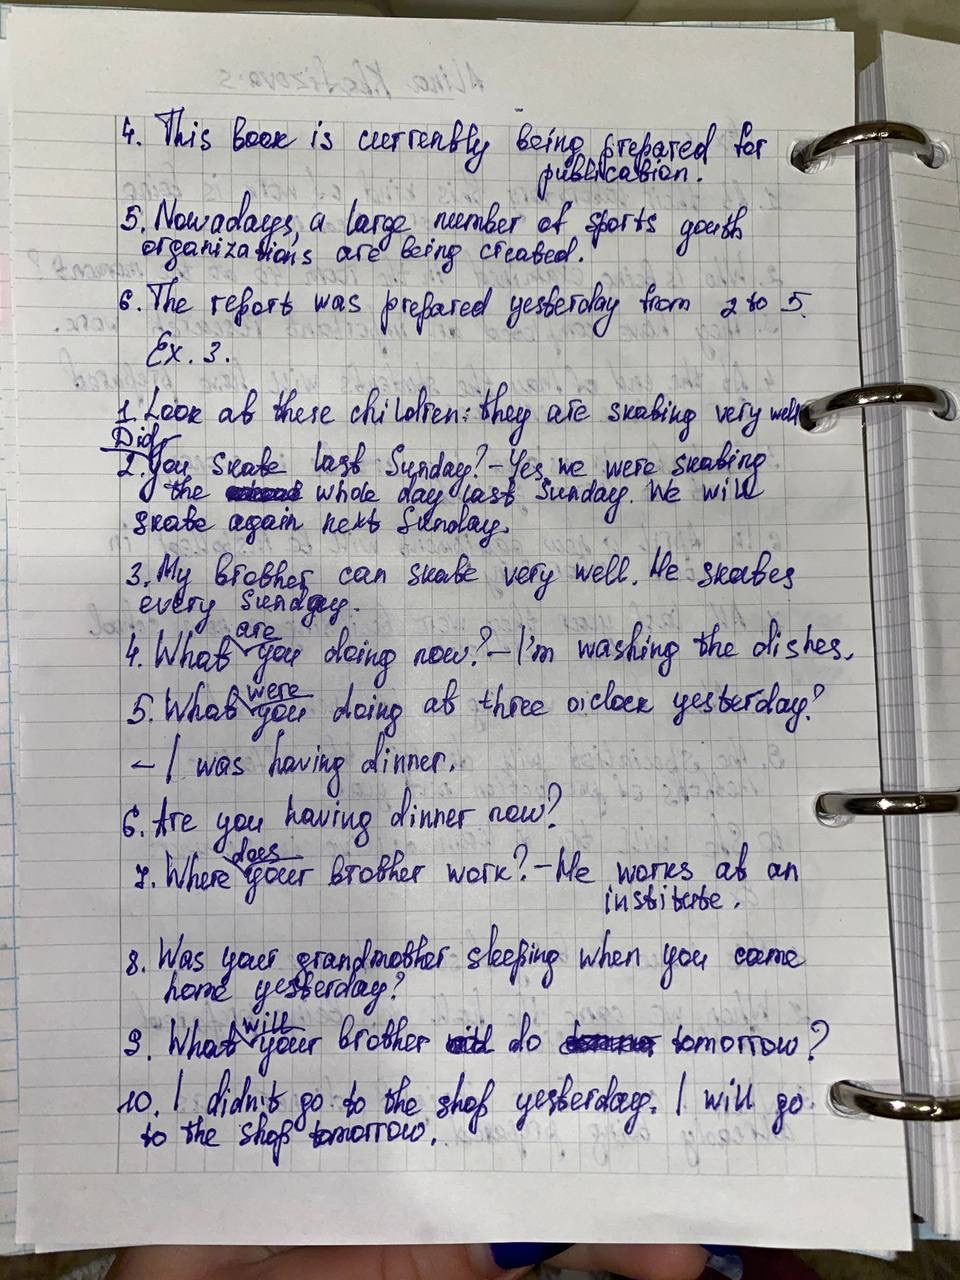 Alina Khafizova
4. This book is currently being prepared for
publication.
5. Nowadays, a large number of sports youth
organizations are being created.
6. The report was prepared yesterday from 2 to 5.
Ex. 3.
1. Look at these children: they are skating very well
Did
2. you skate last Sunday? – Yes, we were skating
the whole day last Sunday. We will
skate again next Sunday.
3. My brother can skate very well. He skates
every Sunday.
are
4. What you doing now? – I'm washing the dishes.
were
5. What you doing at three o'clock yesterday?
– I was having dinner.
6. Are you having dinner now?
does
7. Where your brother work? – He works at an
institute.
8. Was your grandmother sleeping when you came
home yesterday?
will
9. What your brother will do tomorrow?
10. I didn't go to the shop yesterday. I will go
to the shop tomorrow.